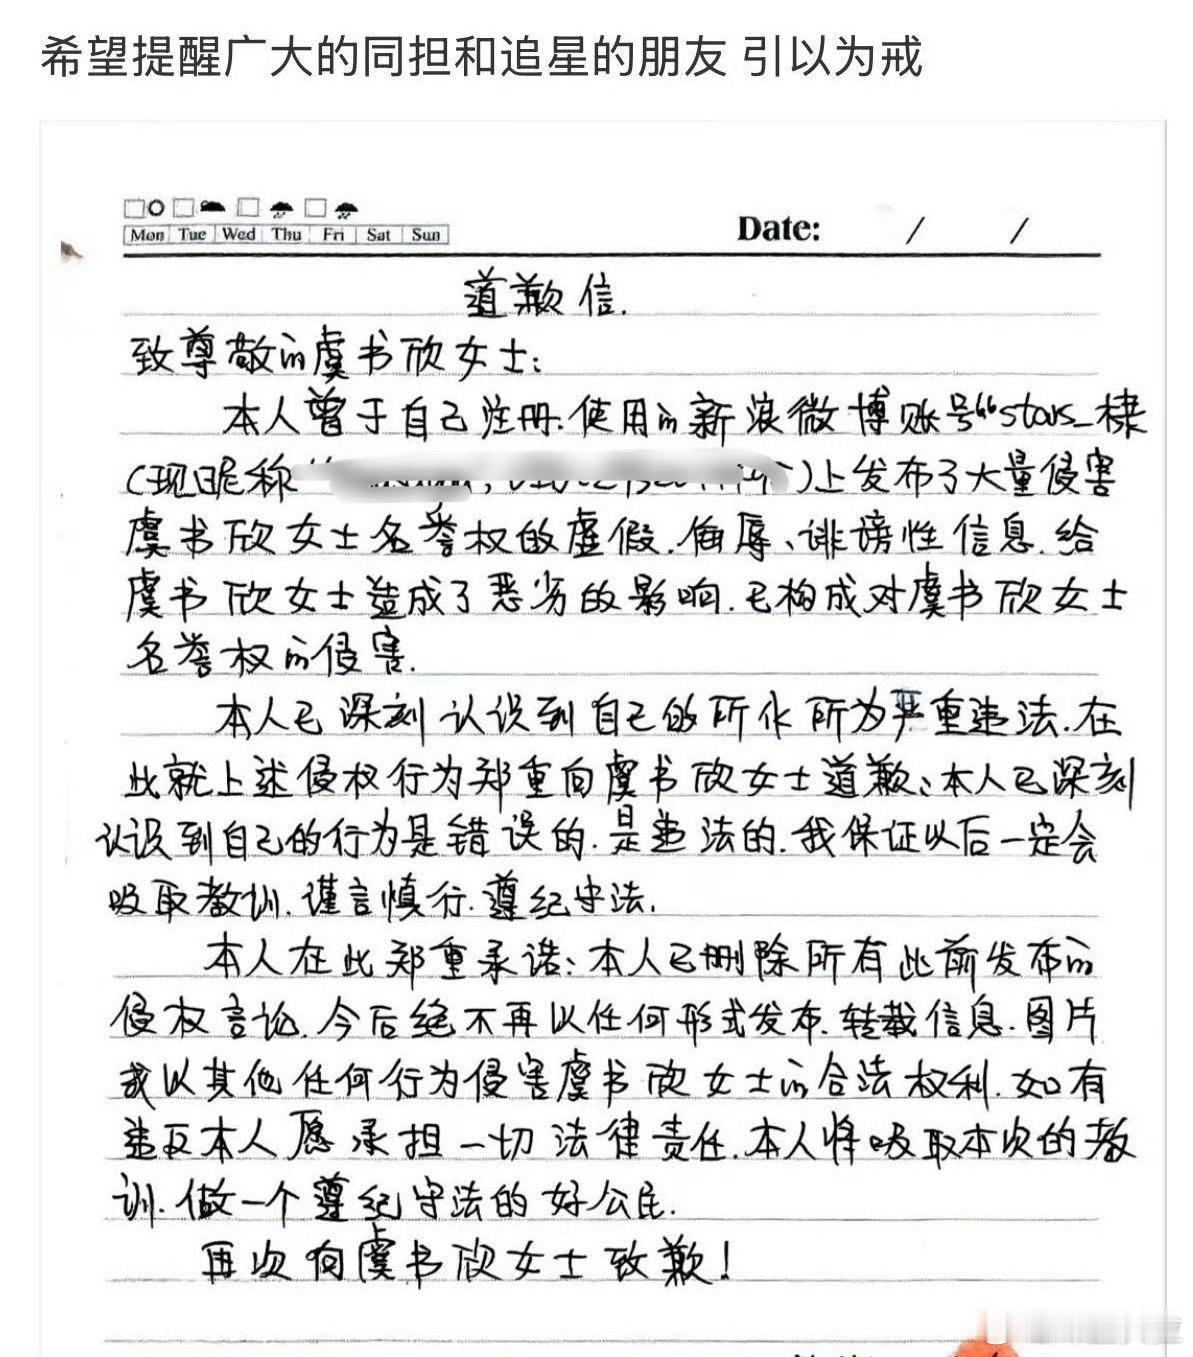 希望提醒广大的同担和追星的朋友 引以为戒
Mon Tue Wed Thu Fri Sat Sun
Date: / /
道歉信.
致尊敬的虞书欣女士:
本人曾于自己注册.使用的新浪微博账号“stars_棣
(现昵称“
)上发布了大量侵害
虞书欣女士名誉权的虚假.侮辱、诽谤性信息.给
虞书欣女士造成了恶劣的影响.已构成对虞书欣女士
名誉权的侵害.
本人已深刻认识到自己的所作所为严重违法.在
此就上述侵权行为郑重向虞书欣女士道歉、本人已深刻
认识到自己的行为是错误的.是违法的.我保证以后一定会
吸取教训.谨言慎行.遵纪守法.
本人在此郑重承诺:本人已删除所有此前发布的
侵权言论.今后绝不再以任何形式发布.转载信息.图片
或以其他任何行为侵害虞书欣女士的合法权利.如有
违反本人愿承担一切法律责任.本人将吸取本次的教
训.做一个遵纪守法的好公民.
再次向虞书欣女士致歉!